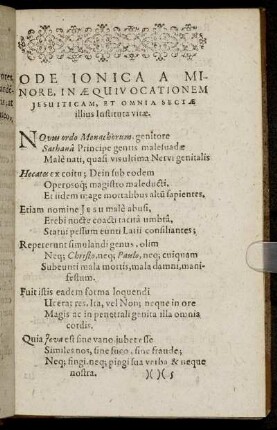 ODE IONICA A MI-
NORE, IN ÆQUIVOCATIONEM
JESUITICAM, ET OMNIA SECTÆ
illius Instituta vitæ.
NOvus ordo Monachorum, genitore
Sathanâ Principe gentis malesuadæ
Malè nati, quasi vis ultima Nervi genitalis
Hecates ex coitu; Dein sub eodem
Operosoq; magistro maleducti.
Et iidem inage mortalibus altùm sapientes,
Etiam nomine Jesu malè abusi,
Erebi nocte coacti tacitâ umbrâ,
Statui pessum eunti Latii consiliantes;
Repererunt simulandi genus, olim
Neq; Christo, neq; Paulo, nec cuiquam
Subeunti mala mortis, mala damni, mani-
festum.
Fuit istis eadem forma loquendi
Ut erat res. Ita, vel Non; neque in ore
Magis ac in penetrali genita illa omnia
cordis.
Quia Jova est sine vano jubet esse
Similes nos, sine fuco, sine fraude;
Neq; fingi, neq; pingi sua verba & neque
nostra. )( )( 5